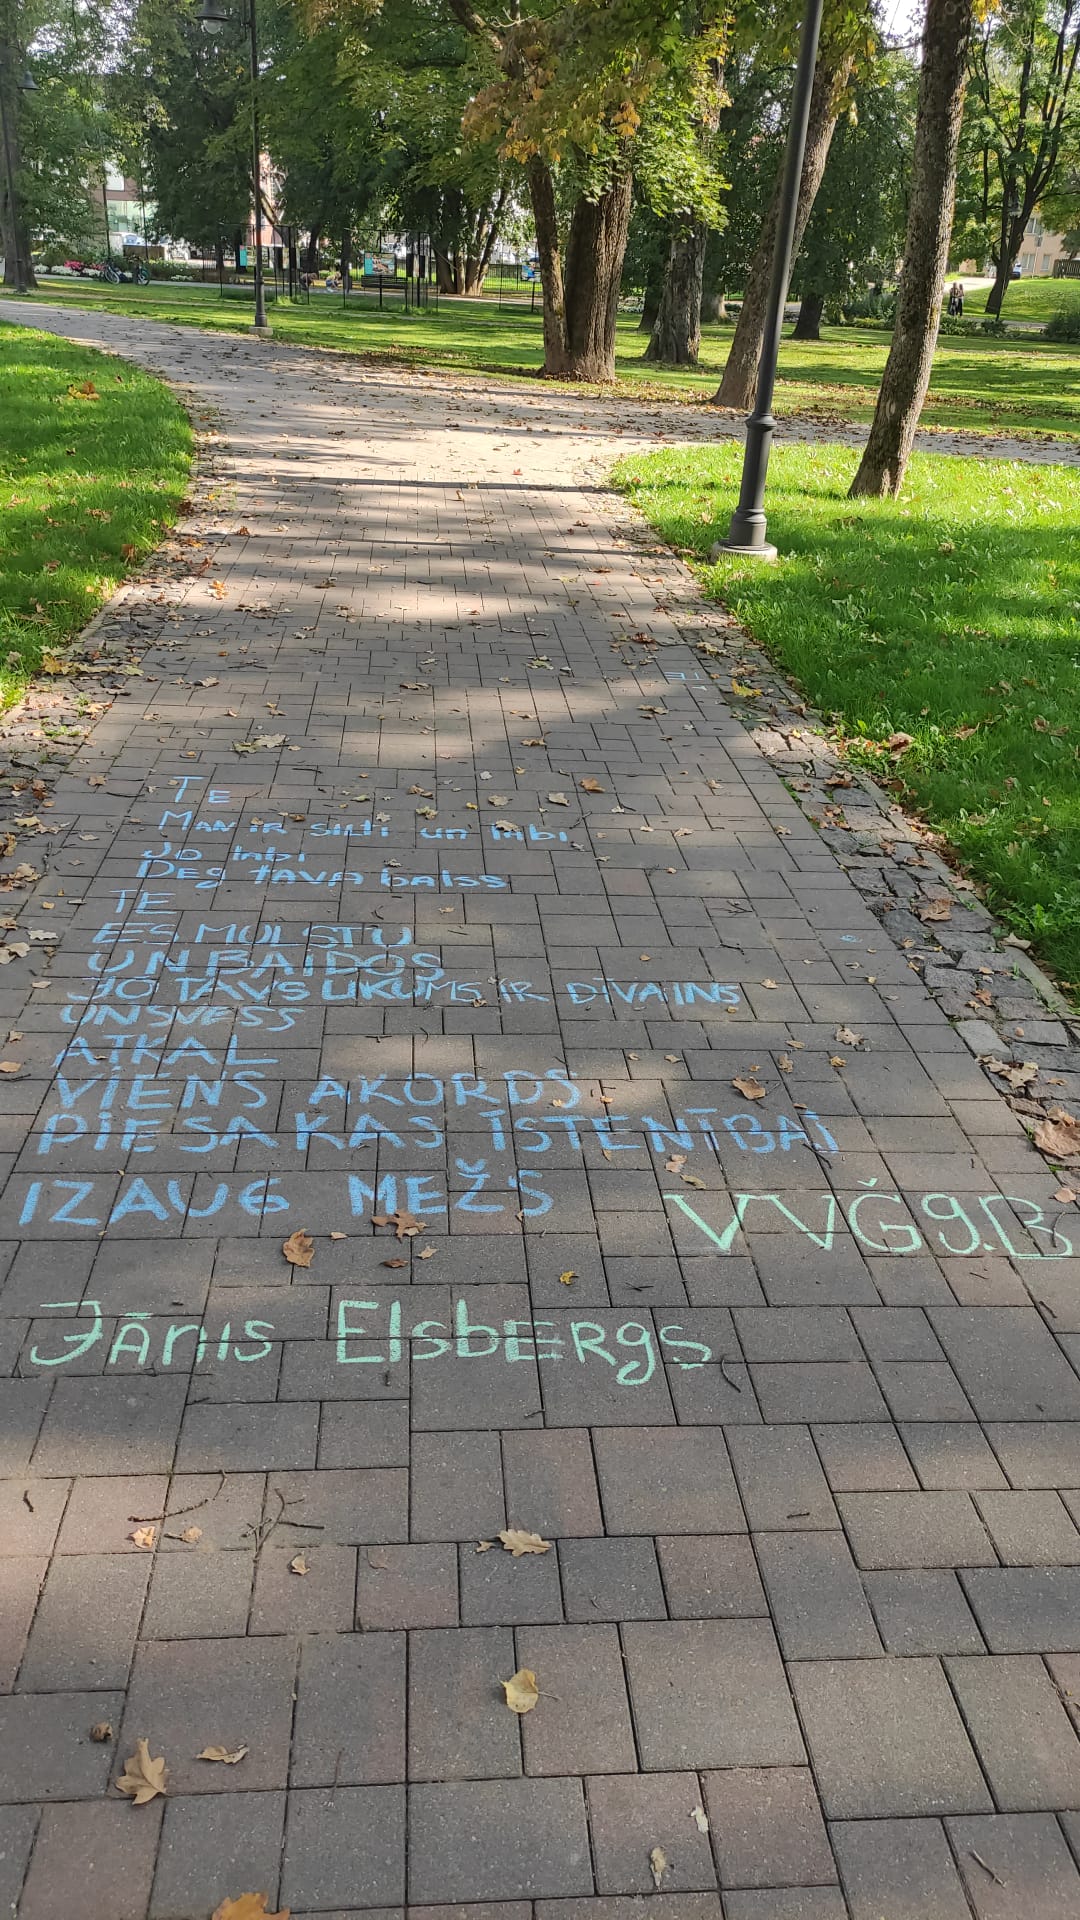 TE
Te
Man ir silti un labi
Jo labi
Deg tava balss
TE
ES MULSTU
UN BAIDOS
JO TAVS LIKUMS IR DĪVAINS
UN SVESS
ATKAL
VIENS AKORDS
PIESAKAS ĪSTENĪBAI
IZAUG MEŽS
VVĞ 9.B
Jānis Elsbergs